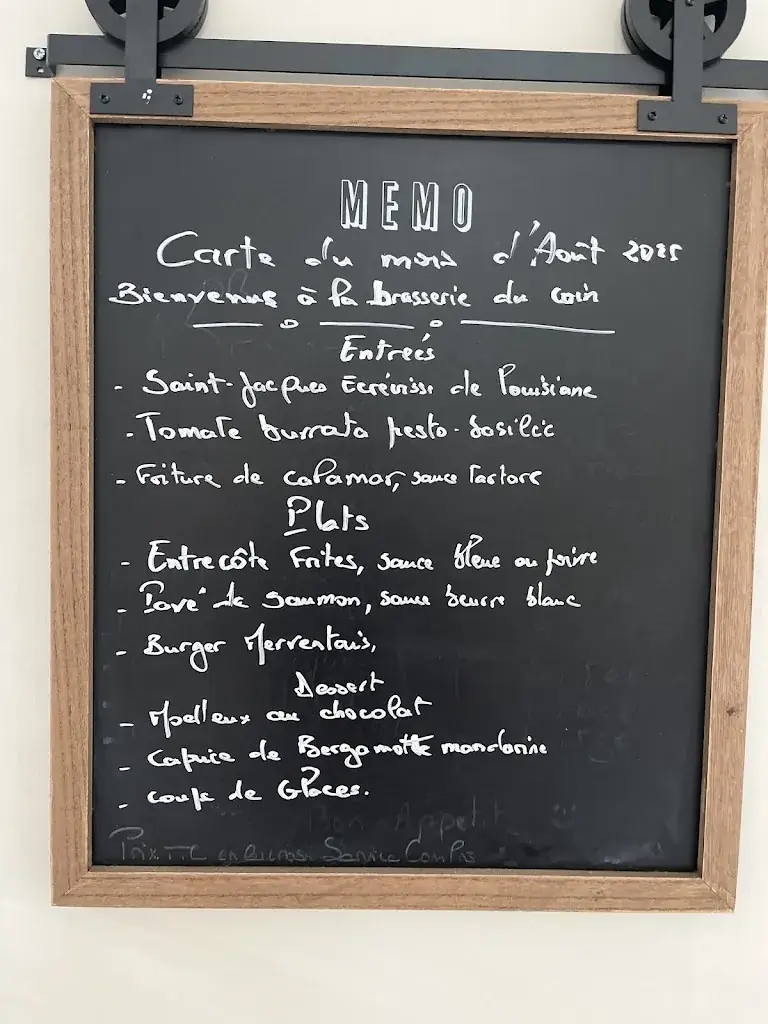 MEMO
Carte du mois d'Août 2025
Bienvenus à la brasserie du coin
Entrées
- Saint-Jacques Ecrévisse de Louisiane
- Tomate burrata pesto-basilic
- Friture de calamar, sauce Tartare
Plats
- Entrecôte Frites, sauce bleue ou poivre
- Pavé de saumon, sauce beurre blanc
- Burger Merventais,
Dessert
- Moelleux au chocolat
- Caprice de Bergamotte mandarine
- coupe de Glaces.
Bon Appetit
Prix TTC en Euros. Service Compris